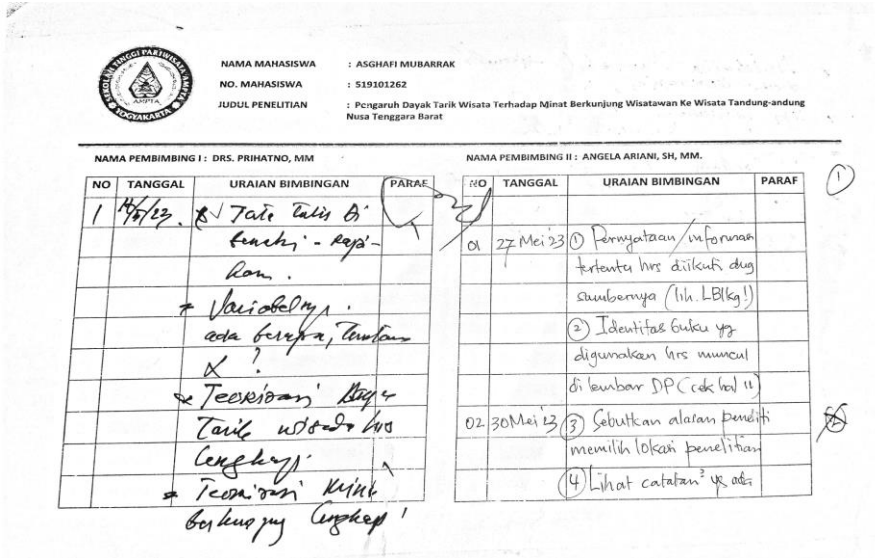 SEKOLAH TINGGI PARIWISATA AMPTA
AMPTA
YOGYAKARTA
NAMA MAHASISWA : ASGHAFI MUBARRAK
NO. MAHASISWA : 519101262
JUDUL PENELITIAN : Pengaruh Dayak Tarik Wisata Terhadap Minat Berkunjung Wisatawan Ke Wisata Tandung-andung
Nusa Tenggara Barat
NAMA PEMBIMBING I : DRS. PRIHATNO, MM
NO TANGGAL URAIAN BIMBINGAN PARAF
1 Tata tulis di
* Variabelnya.
ada berapa,
X ?
* Teorisasi Daya
Tarik wisata hrs
lengkap.
* Teorisasi Minat
berkunjung lengkap !
NAMA PEMBIMBING II : ANGELA ARIANI, SH, MM.
1
NO TANGGAL URAIAN BIMBINGAN PARAF
01 27 Mei '23 1 Pernyataan/informasi
tertentu hrs diikuti dng
sumbernya (lih. LBlkg!)
2 Identitas buku yg
digunakan hrs muncul
di lembar DP (cek hal 11)
02 30 Mei '23 3 Sebutkan alasan peneliti
memilih lokasi penelitian
4 Lihat catatan² yg ada